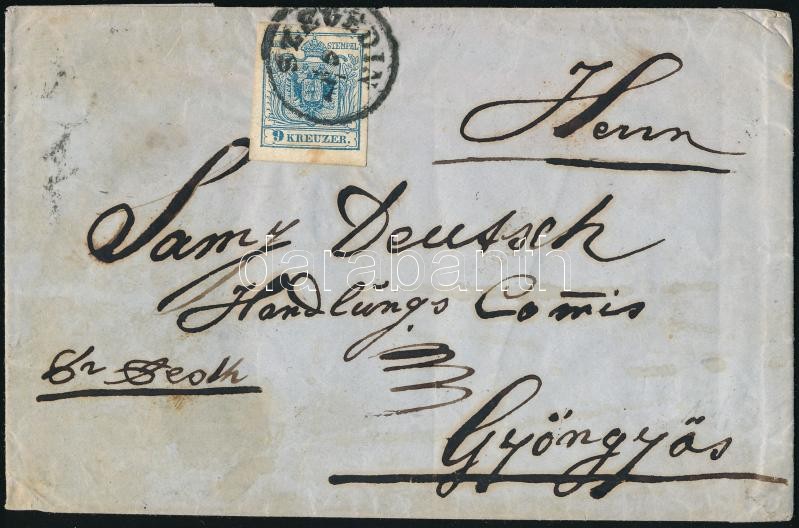 SZEGEDIN
STEMPEL
9 KREUZER.
Herrn
Samy Deutsch
Handlungs Com̅is
pr Pesth
Gyöngyös
darabanth